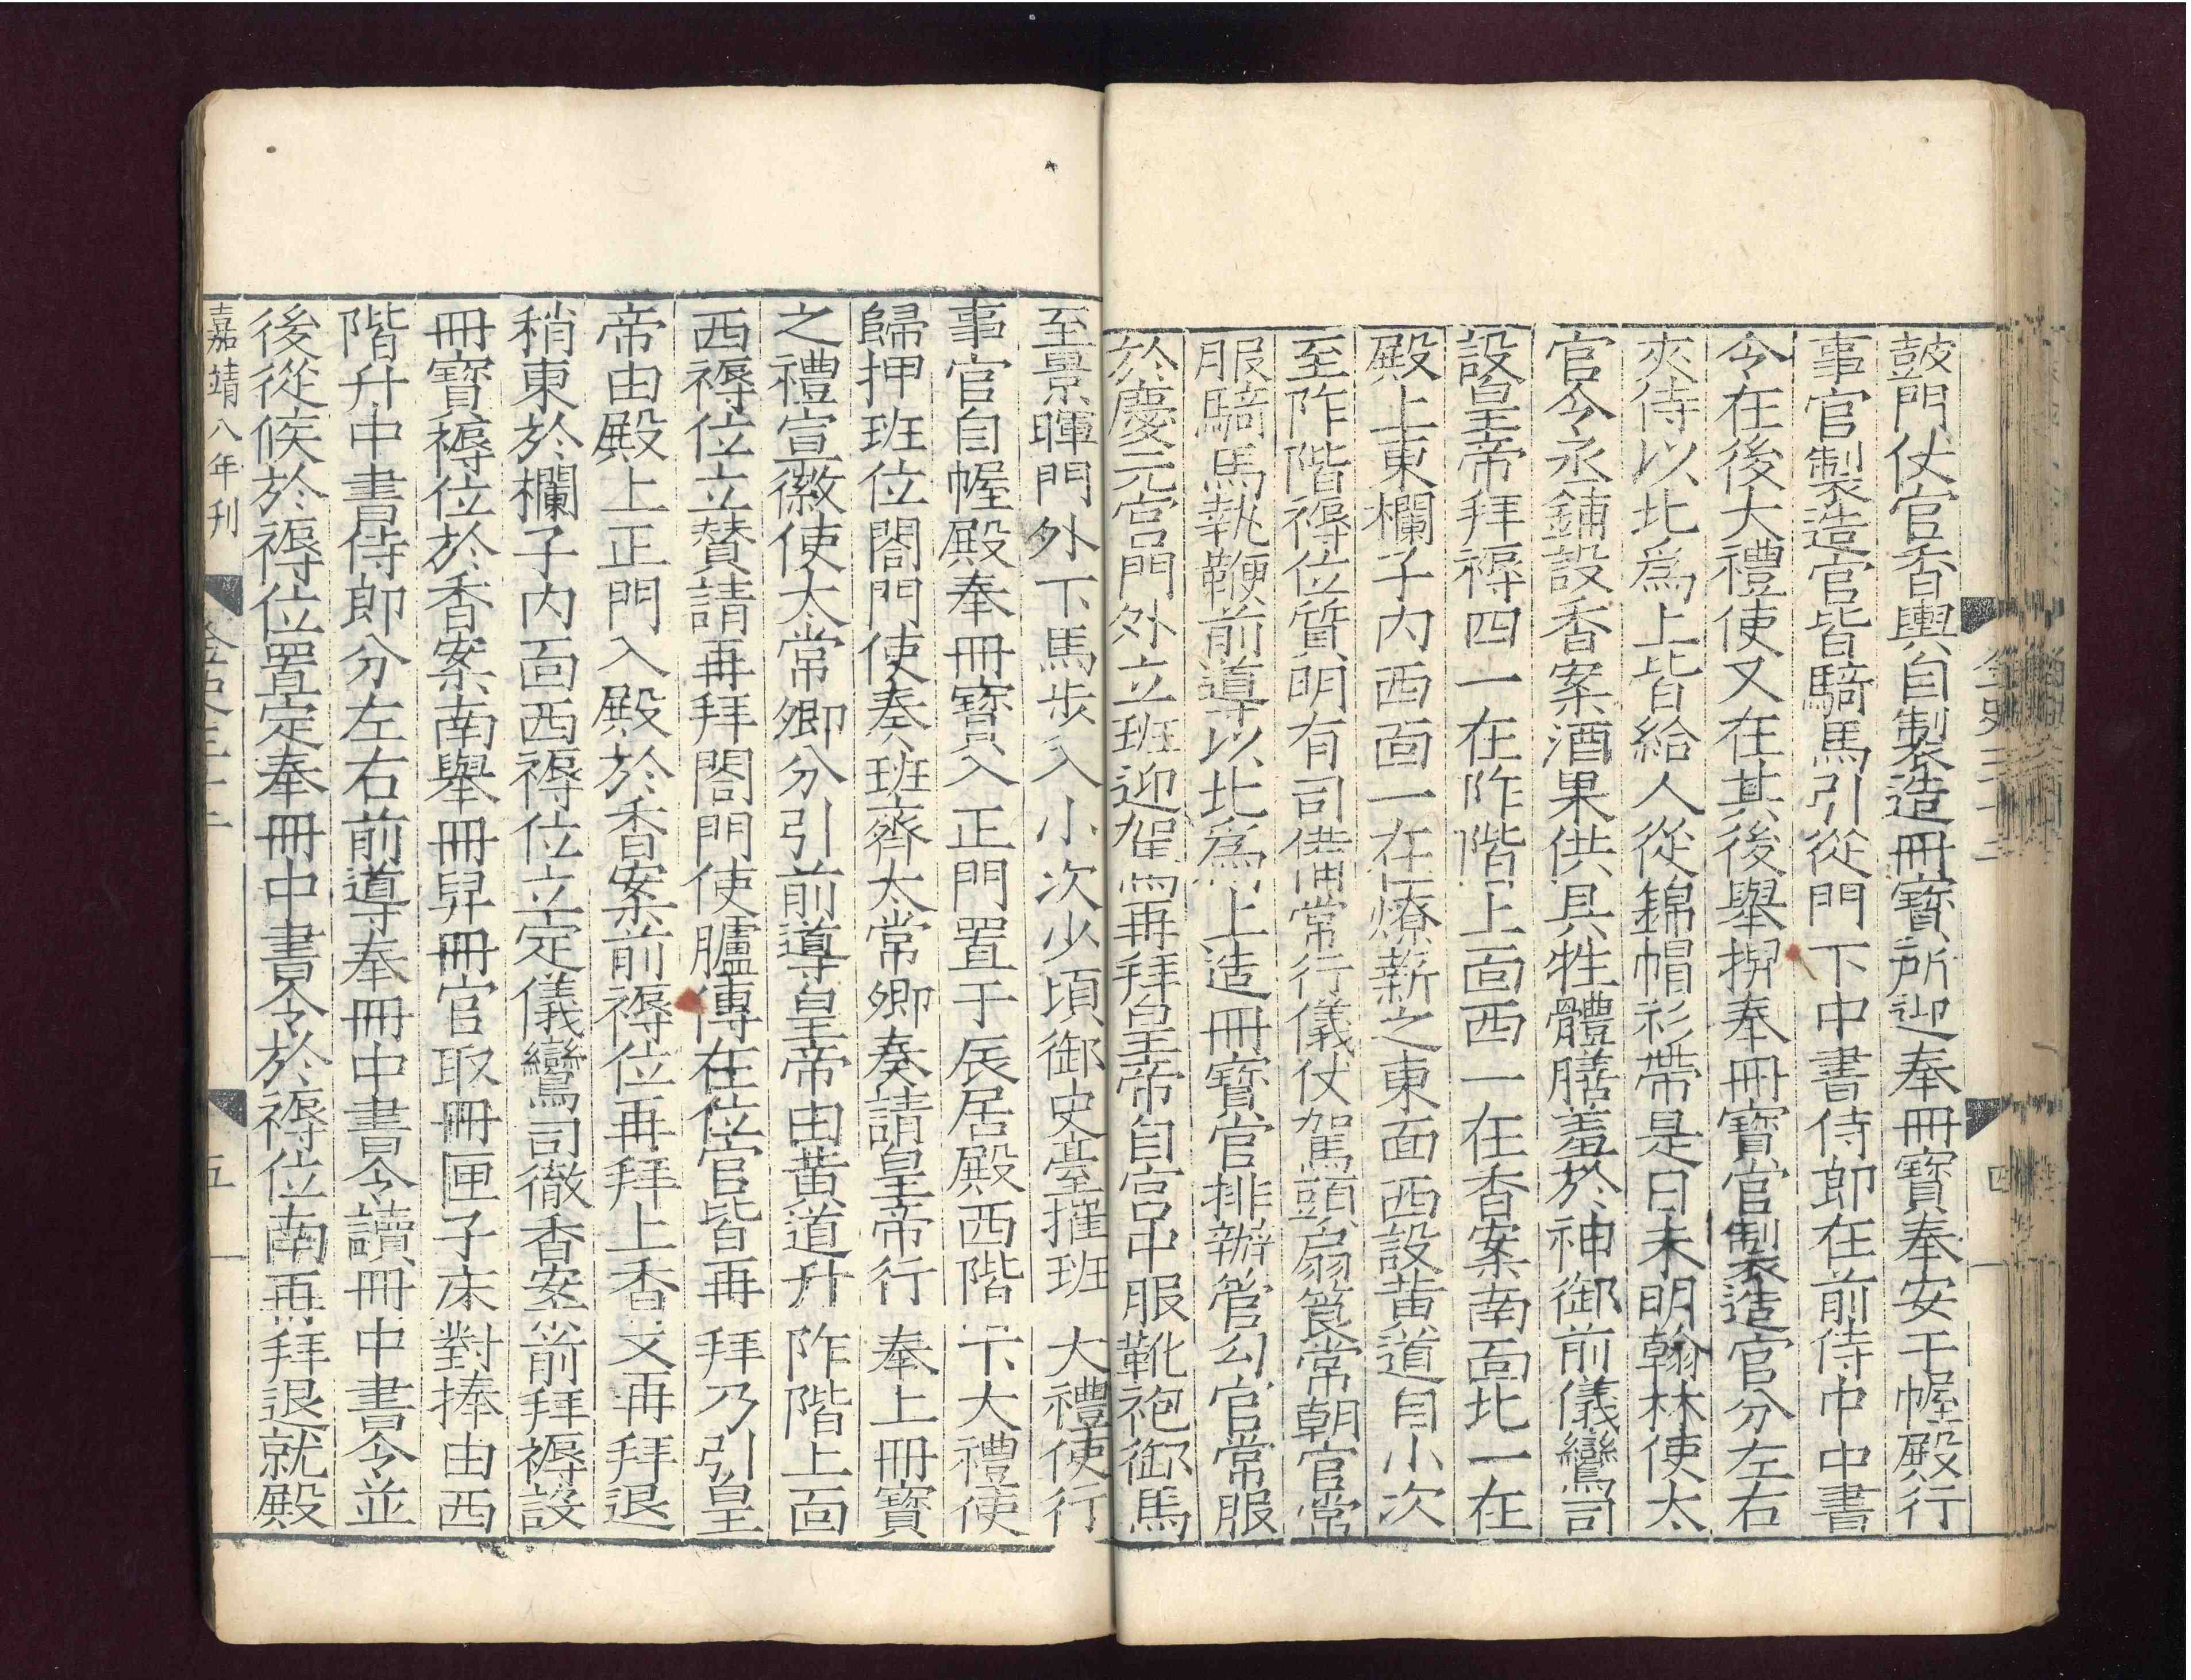 鼓門仗官香輿自製造冊寶所迎奉冊寶奉安于幄殿行
事官製造官皆騎馬引從門下中書侍郎在前侍中中書
令在後大禮使又在其後舉捧奉冊寶官製造官分左右
夾侍以北爲上皆給人從錦帽衫帶是日未明翰林使太
官令丞鋪設香案酒果供具牲體膳羞於神御前儀鸞司
設皇帝拜褥四一在阼階上面西一在香案南面北一在
殿上東欄子内西面一在燎薪之東面西設黃道自小次
至阼階褥位質明有司備常行儀仗駕頭扇筤常朝官常
服騎馬執鞭前導以北爲上造冊寶官排辦管勾官常服
於慶元宮門外立班迎駕再拜皇帝自宮中服靴袍御馬
金史三十二
四
至景暉門外下馬步入小次少頃御史臺催班大禮使行
事官自幄殿奉冊寶入正門置于辰居殿西階下大禮使
歸押班位閤門使奏班齊太常卿奏請皇帝行奉上冊寶
之禮宣徽使太常卿分引前導皇帝由黃道升阼階上面
西褥位立贊請再拜閤門使臚傳在位官皆再拜乃引皇
帝由殿上正門入殿於香案前褥位再拜上香又再拜退
稍東於欄子内面西褥位立定儀鸞司徹香案前拜褥設
冊寶褥位於香案南舉冊舁冊官取冊匣子床對捧由西
階升中書侍郎分左右前導奉冊中書令讀冊中書令並
後從候於褥位置定奉冊中書令於褥位南再拜退就殿
嘉靖八年刊
金史三十二
五